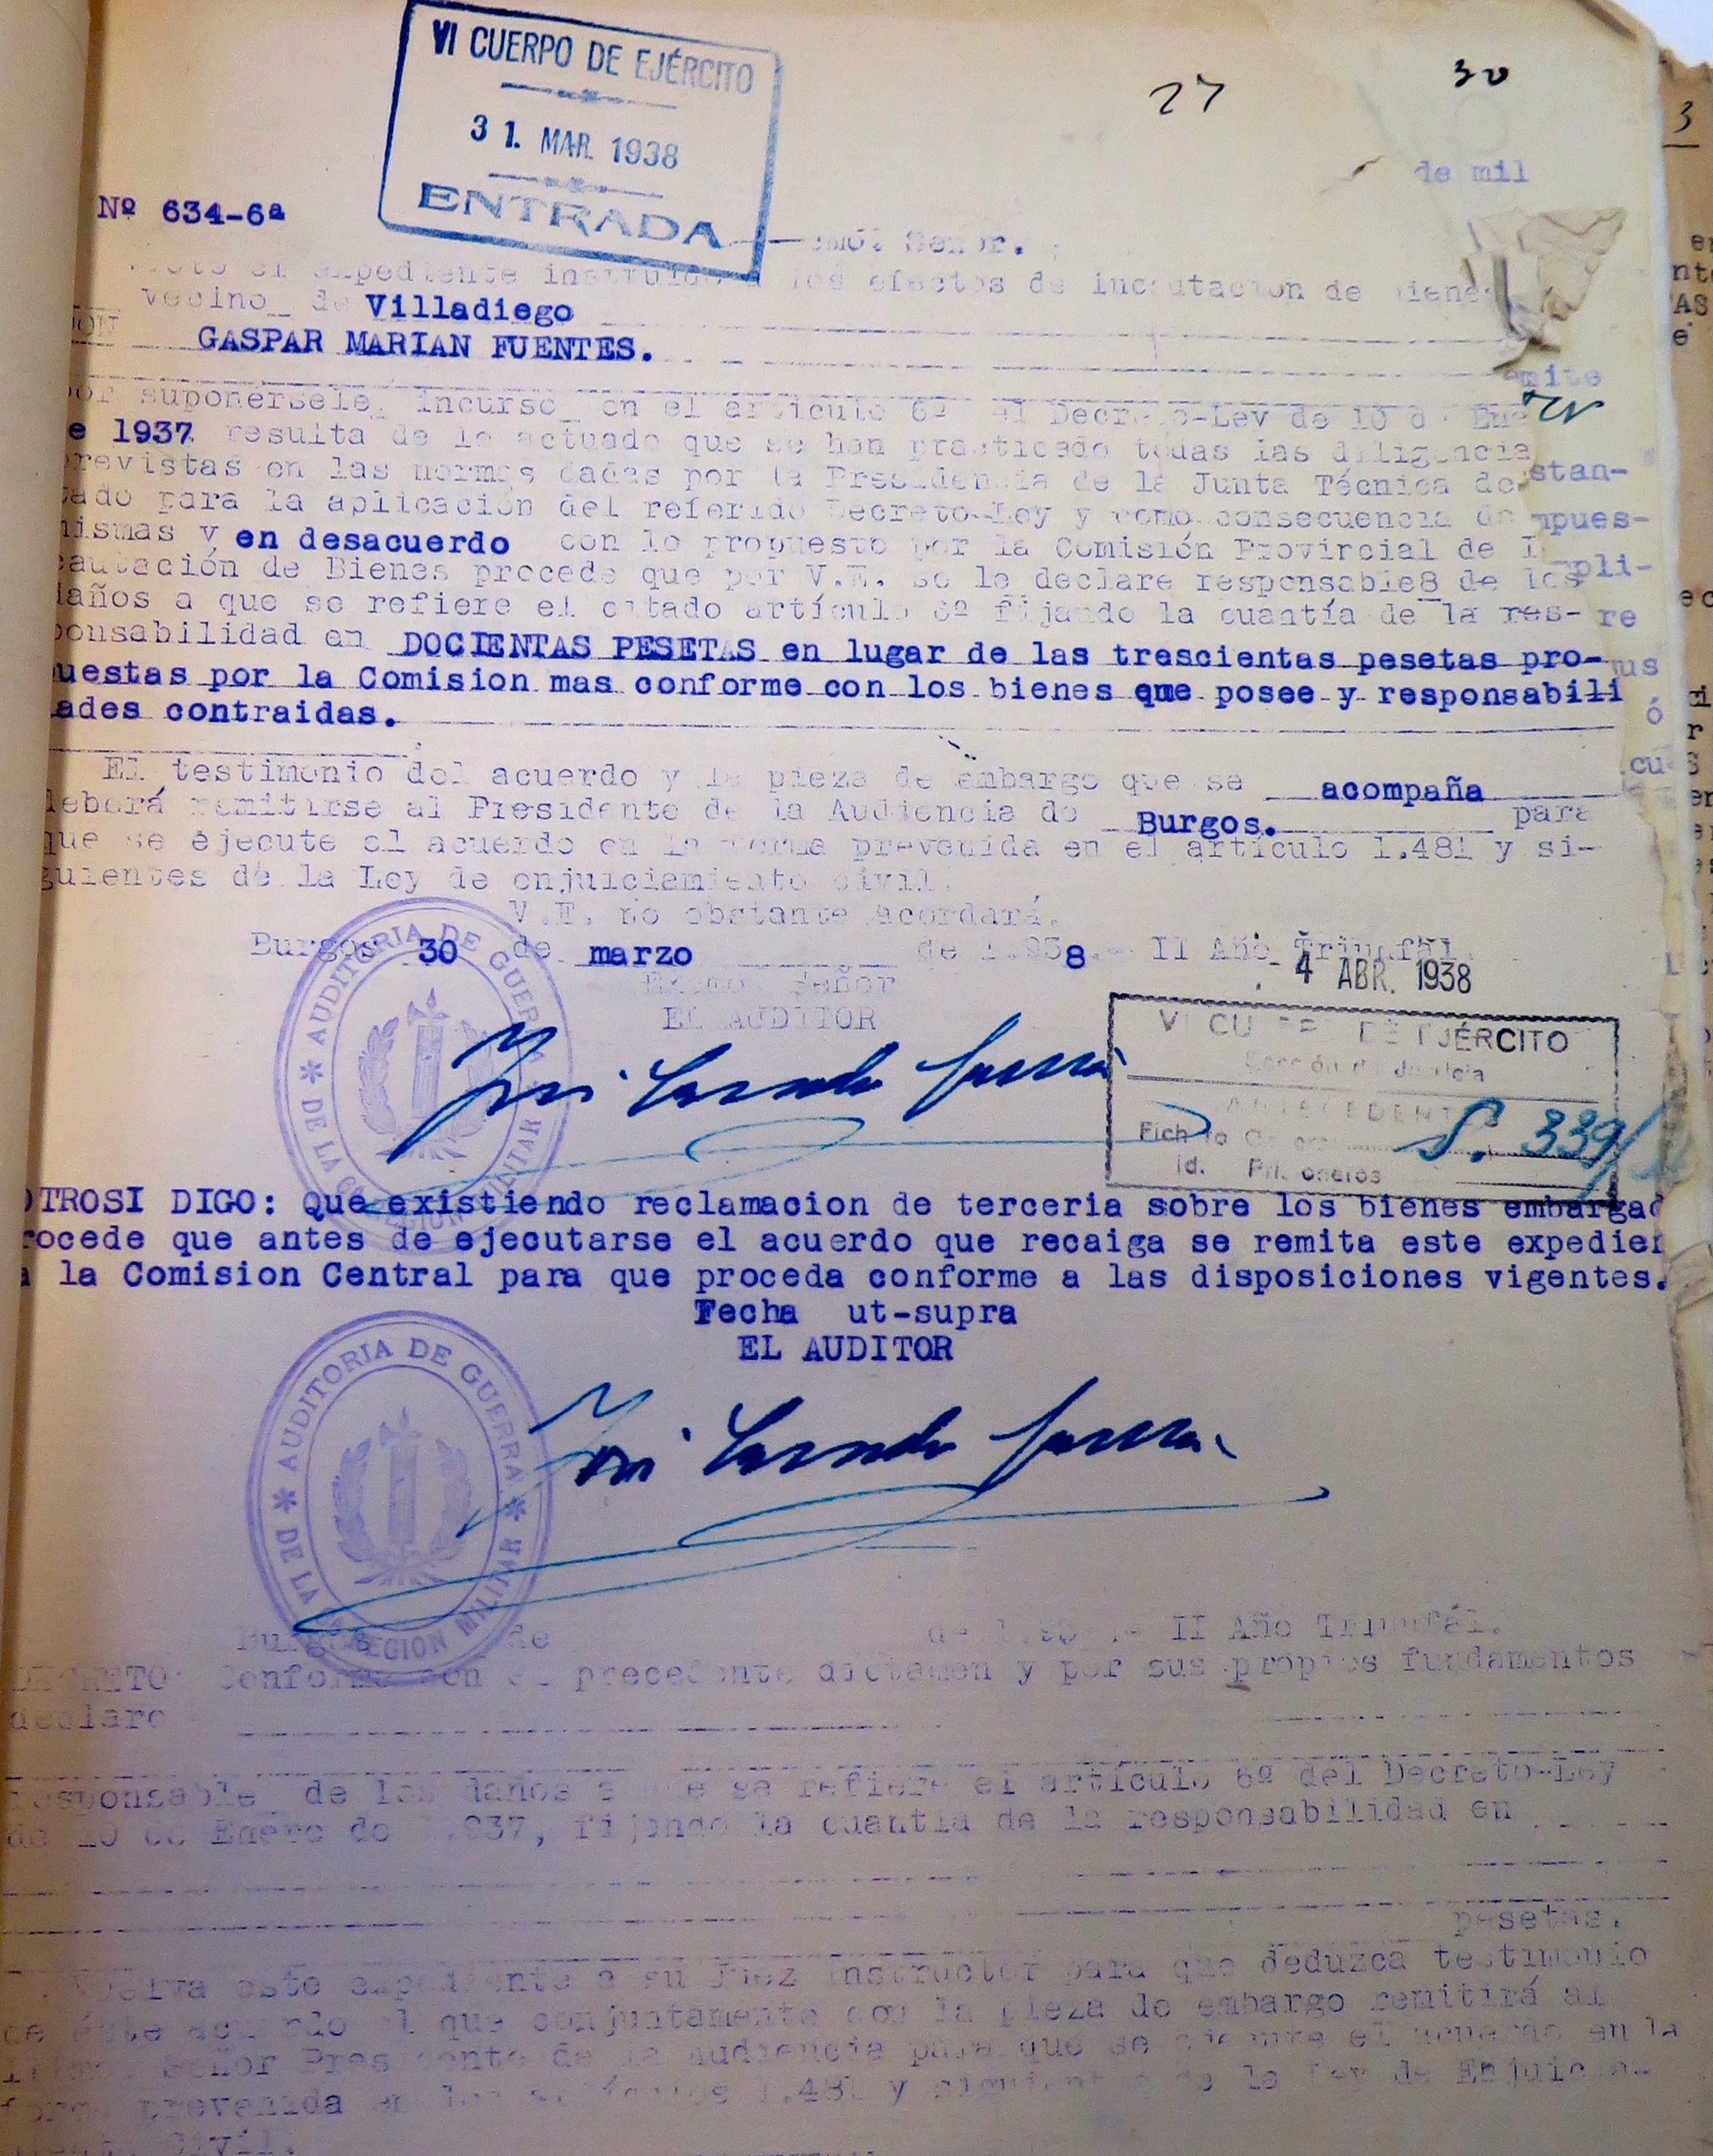 VI CUERPO DE EJÉRCITO
31. MAR. 1938
ENTRADA
27
30
3
de mil
Nº 634-6ª
Señor.
expediente instruido a los efectos de incautacion de biene
vecino de Villadiego
GASPAR MARIAN FUENTES.
emite
por suponersele incurso en el articulo 6º del Decreto-Ley de 10 de Ene
e 1937 resulta de lo actuado que se han practicado todas las diligencia
revistas en las normas dadas por la Presidencia de la Junta Técnica de
stan-
tado para la aplicación del referido Decreto-Ley y como consecuencia de
mpues-
mismas y en desacuerdo con lo propuesto por la Comisión Provincial de I
cautación de Bienes procede que por V.E. se le declare responsable8 de los
pli-
daños a que se refiere el citado artículo 6º fijando la cuantía de la res-
re
ponsabilidad en DOCIENTAS PESETAS en lugar de las trescientas pesetas pro-
us
uestas por la Comision mas conforme con los bienes que posee y responsabili
ades contraidas.
ó
El testimonio del acuerdo y la pieza de embargo que se acompaña
cu
deberá remitirse al Presidente de la Audiencia de Burgos. para
que se ejecute el acuerdo en la forma prevenida en el artículo 1.481 y si-
guientes de la Ley de enjuiciamiento civil.
V.E. no obstante acordará.
Burgos 30 de marzo de 1.938.- II Año Triunfal.
4 ABR. 1938
Excmo. Señor
EL AUDITOR
AUDITORIA DE GUERRA
DE LA REGION MILITAR
VI CUERPO DE EJÉRCITO
Sección de Justicia
ANTECEDENTES
Fichero
id. Prisioneros
S. 339/
OTROSI DIGO: Que existiendo reclamacion de terceria sobre los bienes embargad
rocede que antes de ejecutarse el acuerdo que recaiga se remita este expedien
a la Comision Central para que proceda conforme a las disposiciones vigentes.
Fecha ut-supra
EL AUDITOR
AUDITORIA DE GUERRA
DE LA REGION MILITAR
Burgos de de 1.93 .- II Año Triunfal.
DECRETO: Conforme con el precedente dictamen y por sus propios fundamentos
declaro
responsable de los daños a que se refiere el artículo 6º del Decreto-Ley
de 10 de Enero de 1.937, fijando la cuantía de la responsabilidad en
pesetas.
Vuelva este expediente a su Juez Instructor para que deduzca testimonio
de éste acuerdo el que conjuntamente con la pieza de embargo remitirá al
Señor Presidente de la Audiencia para que se ejecute el acuerdo en la
forma prevenida en los artículos 1.481 y siguientes de la Ley de Enjuicia-
civil.